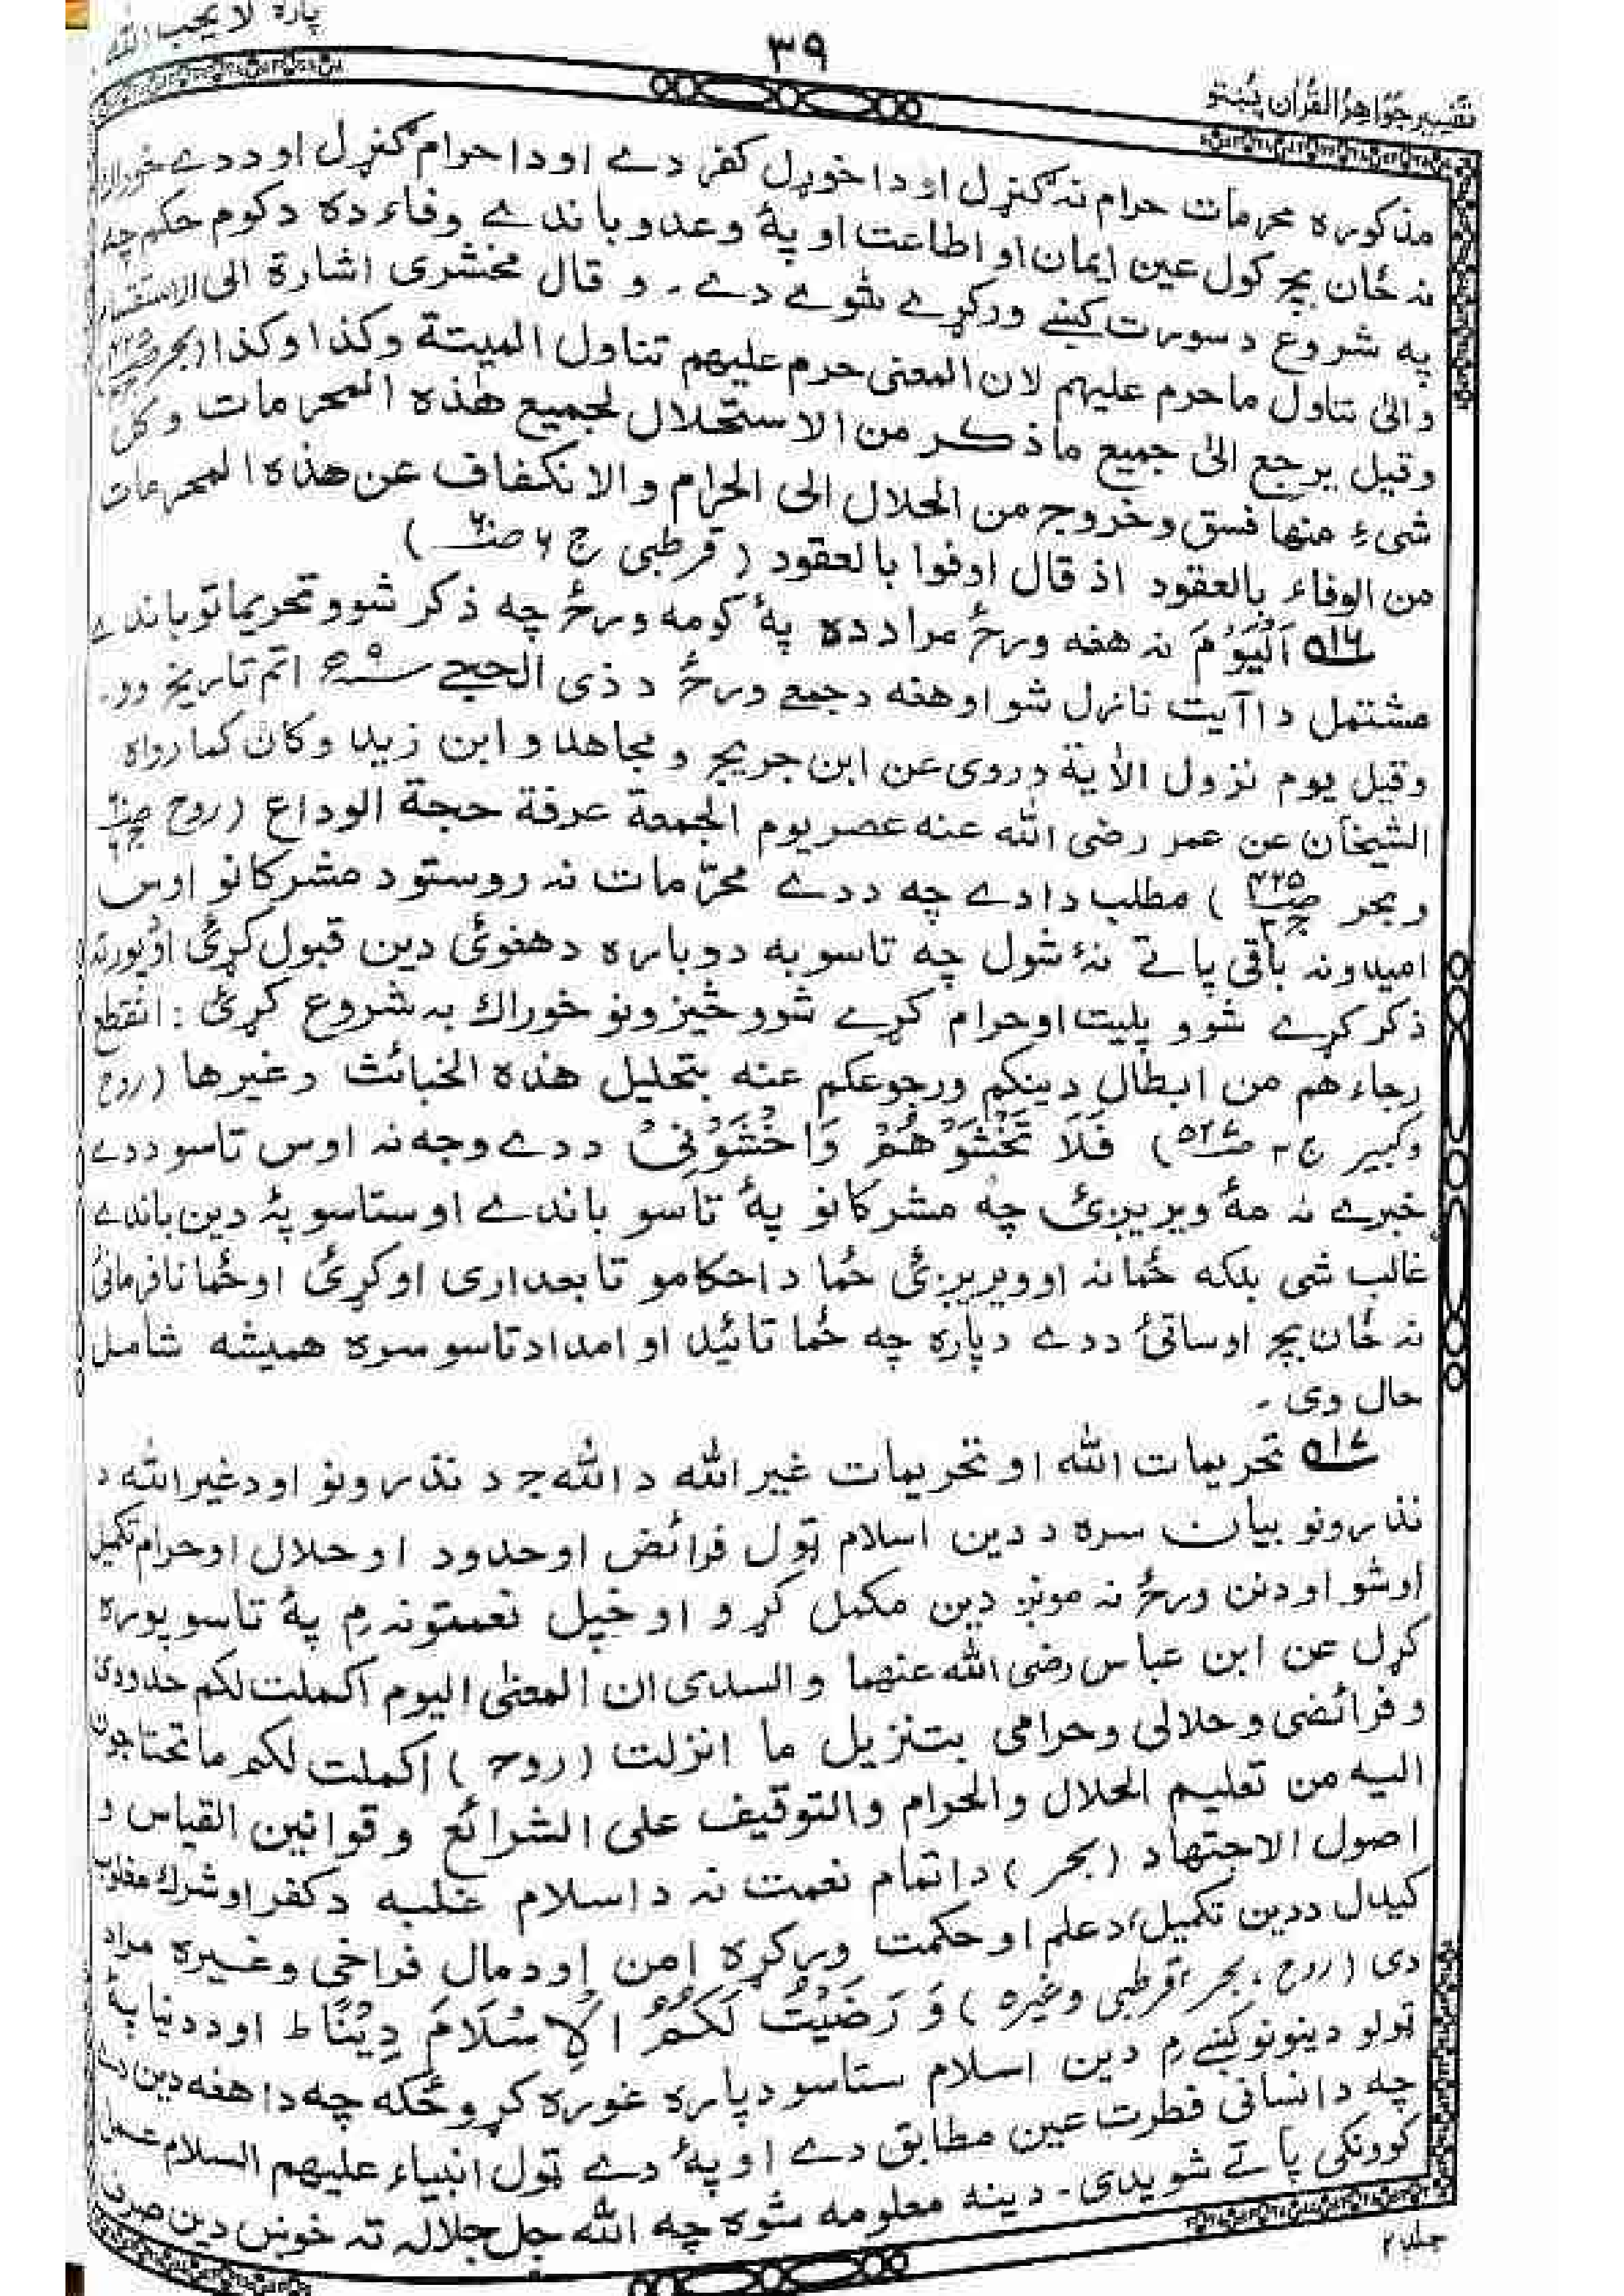 پاره لا یحب الله
۳۹
تفسیر جواهر القرآن پښتو
مذکوره محرمات حرام نه ګنړل او دا خوړل کفر دے او دا حرام ګنړل او ددے خوراک
نه ځان بچ کول عین ایمان او اطاعت او په وعدو باندے وفاء ده د کوم حکم چه
په شروع د سورت کښے ورکړے شوے دے۔ و قال مخشری اشارة الی الاستقسام
والیٰ تناول ما حرم علیهم لان المعنی حرم علیهم تناول المیتة وکذا وکذا (بحر
وقیل یرجع الیٰ جمیع ما ذکر من الاستحلال لجمیع هٰذه المحرمات وکل
شیء منها فسق وخروج من الحلال الی الحرام والانکفاف عن هذه المحرمات
من الوفاء بالعقود اذ قال اوفوا بالعقود (قرطبی ج ۶ ص )
۵۱۶ اَلْیَوْمَ نه هغه ورځ مراد ده په کومه ورځ چه ذکر شوو تحریماتو باندے
مشتمل دا آیت نازل شو او هغه د جمعے ورځ د ذی الحجے سنه ۹ اتم تاریخ وو۔
وقیل یوم نزول الاٰیة وروی عن ابن جریج و مجاهد و ابن زید وکان کما رواه
الشیخان عن عمر رضی الله عنه عصر یوم الجمعة عرفة حجة الوداع (روح
وبحر ص ۴۲۵ ج ۳) مطلب دا دے چه ددے محرّمات نه روستو د مشرکانو اوس
امیدونه باقی پاتے نهٔ شول چه تاسو به دوباره د هغوئ دین قبول کړئ او پورته
ذکر کړے شوو پلیت او حرام کړے شوو څیزونو خوراک به شروع کړئ: انقطع
رجاءهم من ابطال دینکم ورجوعکم عنه بتحلیل هذه الخبائث وغیرها (روح
وکبیر ج ۳ ص ۵۲۶) فَلَا تَخْشَوْهُمْ وَاخْشَوْنِیْ ددے وجه نه اوس تاسو ددے
خبرے نه مهٔ ویریږئ چه مشرکانو په تاسو باندے او ستاسو په دین باندے
غالب شی بلکه ځما نه اوویریږئ ځما د احکامو تابعداری اوکړئ او ځما نافرمانئ
نه ځان بچ اوساتئ ددے دپاره چه ځما تائید او امداد تاسو سره همیشه شامل
حال وی۔
۵۱۷ تحریمات الله او تحریمات غیر الله د الله ج د نذرونو او د غیر الله د
نذرونو بیان سره د دین اسلام ټول فرائض او حدود او حلال او حرام تکمیل
اوشو او د نن ورځ نه مونږ دین مکمل کړو او خپل نعمتونه م په تاسو پوره
کړل عن ابن عباس رضی الله عنهما والسدی ان المعنی الیوم اکملت لکم حدودی
وفرائضی وحلالی وحرامی بتنزیل ما انزلت (روح) اکملت لکم ما تحتاجون
الیه من تعلیم الحلال والحرام والتوقیف علی الشرائع وقوانین القیاس و
اصول الاجتهاد (بحر) د اتمام نعمت نه د اسلام غلبه د کفر او شرک مغلوب
کیدل د دین تکمیل، د علم او حکمت ورکړه امن او د مال فراخی وغیره مراد
دی (روح، بحر، قرطبی وغیره) وَ رَضِیْتُ لَکُمُ الْاِسْلَامَ دِیْنًا ط او د دنیا په
ټولو دینونو کښے م دین اسلام ستاسو دپاره غوره کړو ځکه چه دا هغه دین دے
چه د انسانی فطرت عین مطابق دے او په دے ټول انبیاء علیهم السلام عمل
کوونکی پاتے شویدی۔ دینه معلومه شوه چه الله جل جلاله ته خوښ دین صرف
جلد ۲